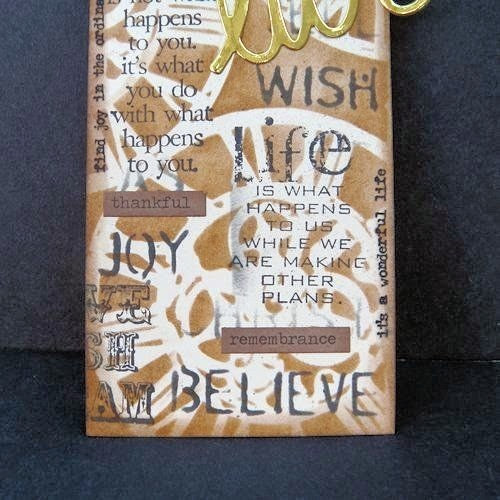 is not what
happens
to you.
it's what
you do
with what
happens
to you.
find joy in the
WISH
Life
IS WHAT
HAPPENS
TO US
WHILE WE
ARE MAKING
OTHER
PLANS.
it's a wonderful life
thankful
JOY
remembrance
BELIEVE